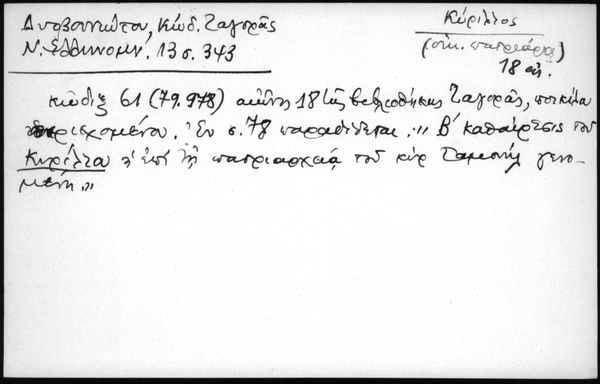 Δυοβουνιώτου, Κώδ. Ζαγορᾶς
Ν. Ἑλληνομν. 13 σ. 343
Κύριλλος
(οἰκ. πατριάρχης)
18 αἰ.
κῶδιξ 61 (79.978) αἰῶνος 18 τῆς βιβλιοθήκης Ζαγορᾶς, ποικίλα
περιεχομένου. Ἐν σ. 78 παραδίδεται. "Β´ καθαίρεσις τοῦ
Κυρίλλου ἡ ἐπὶ τῆς πατριαρχείας τοῦ κὺρ γενο-
μένη"